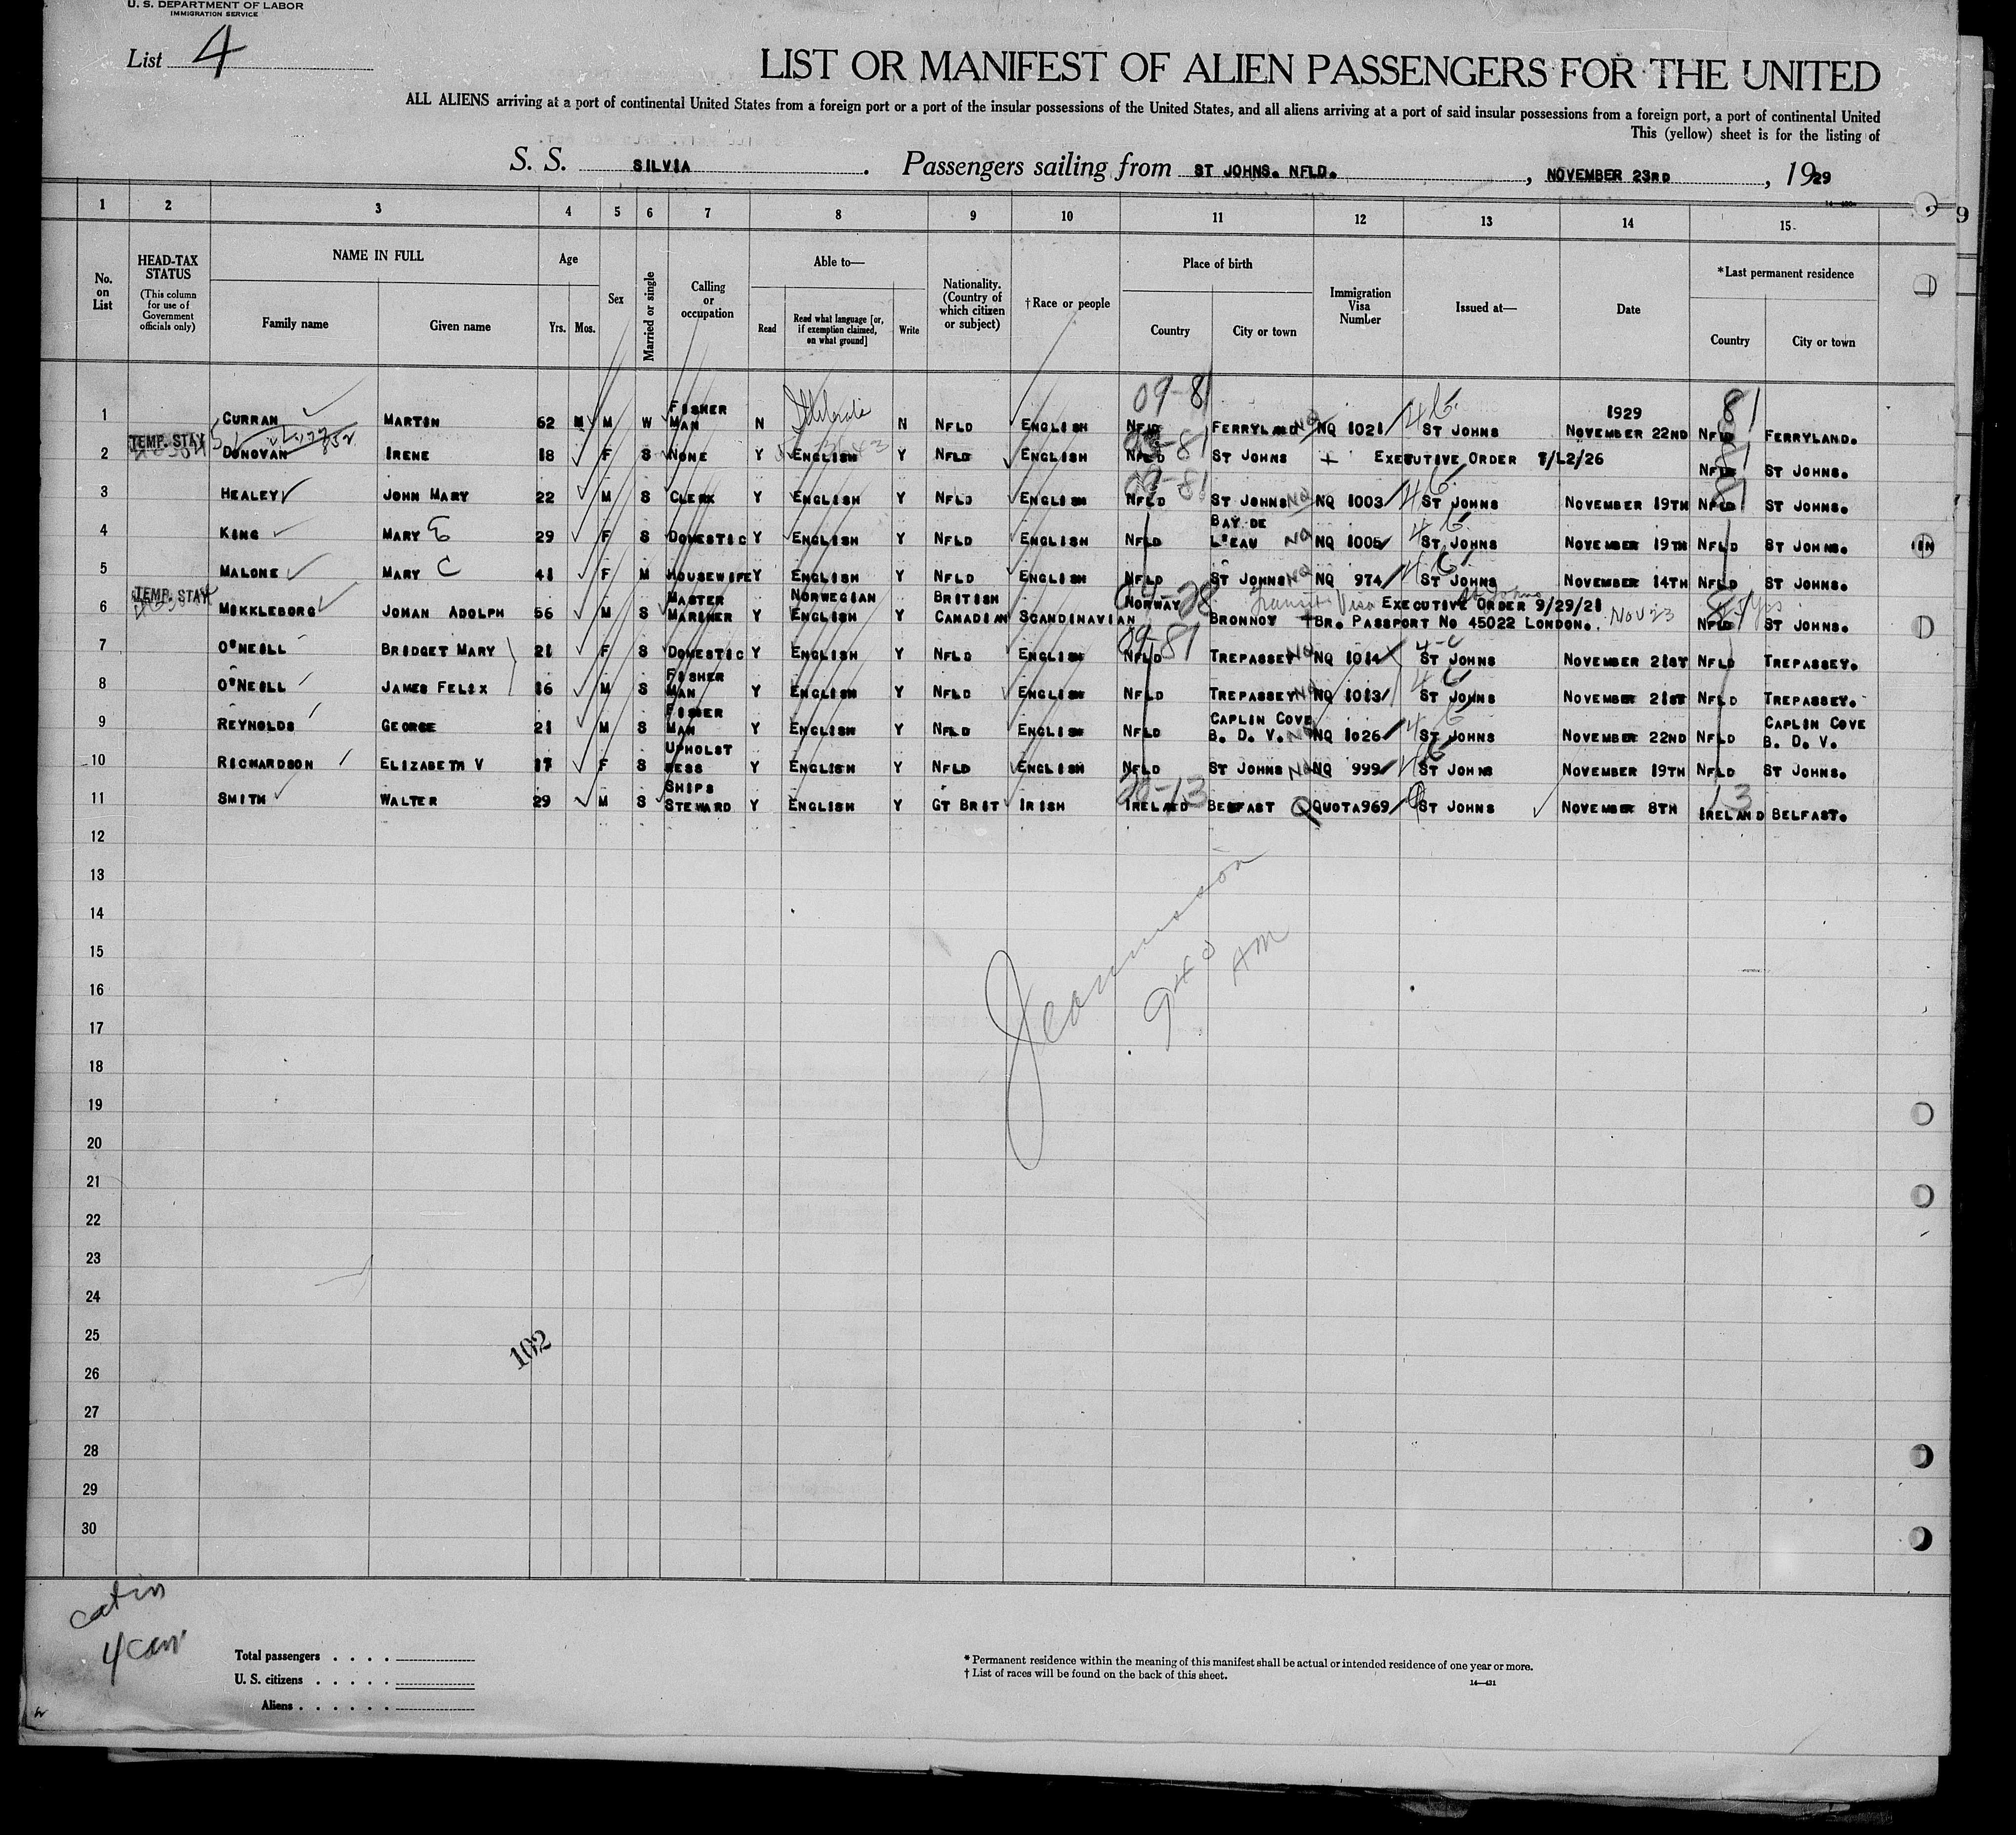 U. S. DEPARTMENT OF LABOR
IMMIGRATION SERVICE
List 4
LIST OR MANIFEST OF ALIEN PASSENGERS FOR THE UNITED
ALL ALIENS arriving at a port of continental United States from a foreign port or a port of the insular possessions of the United States, and all aliens arriving at a port of said insular possessions from a foreign port, a port of continental United
This (yellow) sheet is for the listing of
S. S. SILVIA. Passengers sailing from ST JOHNS. NFLD., NOVEMBER 23RD, 1929
1 2 3 4 5 6 7 8 9 10 11 12 13 14 15
No. on List
HEAD-TAX STATUS (This column for use of Government officials only)
NAME IN FULL
Family name Given name
Age
Yrs. Mos.
Sex
Married or single
Calling or occupation
Able to—
Read
Read what language [or, if exemption claimed, on what ground]
Write
Nationality. (Country of which citizen or subject)
†Race or people
Place of birth
Country City or town
Immigration Visa Number
Issued at—
Date
*Last permanent residence
Country City or town
09-81 81
1 CURRAN MARTIN 62 M M W FISHER MAN N N NFLD ENGLISH NFLD FERRYLAND NQ 1021 ST JOHNS 1929 NOVEMBER 22ND NFLD FERRYLAND.
2 TEMP. STAY DONOVAN IRENE 18 F S NONE Y ENGLISH Y NFLD ENGLISH NFLD ST JOHNS + EXECUTIVE ORDER NFLD ST JOHNS.
3 HEALEY JOHN MARY 22 M S CLERK Y ENGLISH Y NFLD ENGLISH NFLD ST JOHNS NQ 1003 ST JOHNS NOVEMBER 19TH NFLD ST JOHNS.
4 KING MARY E 29 F S DOMESTIC Y ENGLISH Y NFLD ENGLISH NFLD BAY DE L'EAU NQ 1005 ST JOHNS NOVEMBER 19TH NFLD ST JOHNS.
5 MALONE MARY C 41 F M HOUSEWIFE Y ENGLISH Y NFLD ENGLISH NFLD ST JOHNS NQ 974 ST JOHNS NOVEMBER 14TH NFLD ST JOHNS.
6 TEMP. STAY MIKKLEBORG JOHAN ADOLPH 56 M S MASTER MARINER Y NORWEGIAN ENGLISH Y BRITISH CANADIAN SCANDINAVIAN NORWAY BRONNOY Transit Visa St Johns EXECUTIVE ORDER 9/29/21 BR. PASSPORT NO 45022 LONDON. Nov 23 NFLD ST JOHNS.
7 O'NEILL BRIDGET MARY 21 F S DOMESTIC Y ENGLISH Y NFLD ENGLISH NFLD TREPASSEY NQ 1014 ST JOHNS NOVEMBER 21ST NFLD TREPASSEY.
8 O'NEILL JAMES FELIX 16 M S FISHER MAN Y ENGLISH Y NFLD ENGLISH NFLD TREPASSEY NQ 1013 ST JOHNS NOVEMBER 21ST NFLD TREPASSEY.
9 REYNOLDS GEORGE 21 M S FISHER MAN Y ENGLISH Y NFLD ENGLISH NFLD CAPLIN COVE B. D. V. NQ 1026 ST JOHNS NOVEMBER 22ND NFLD CAPLIN COVE B. D. V.
10 RICHARDSON ELIZABETH V 17 F S UPHOLST RESS Y ENGLISH Y NFLD ENGLISH NFLD ST JOHNS NQ 999 ST JOHNS NOVEMBER 19TH NFLD ST JOHNS.
11 SMITH WALTER 29 M S SHIPS STEWARD Y ENGLISH Y GT BRIT IRISH IRELAND BELFAST QUOTA969 ST JOHNS NOVEMBER 8TH IRELAND BELFAST.
12
13
14
15
16
17
18
19
20
21
22
23
24
25
26
27
28
29
30
940 AM
102
Total passengers
U. S. citizens
Aliens
* Permanent residence within the meaning of this manifest shall be actual or intended residence of one year or more.
† List of races will be found on the back of this sheet.
14—431